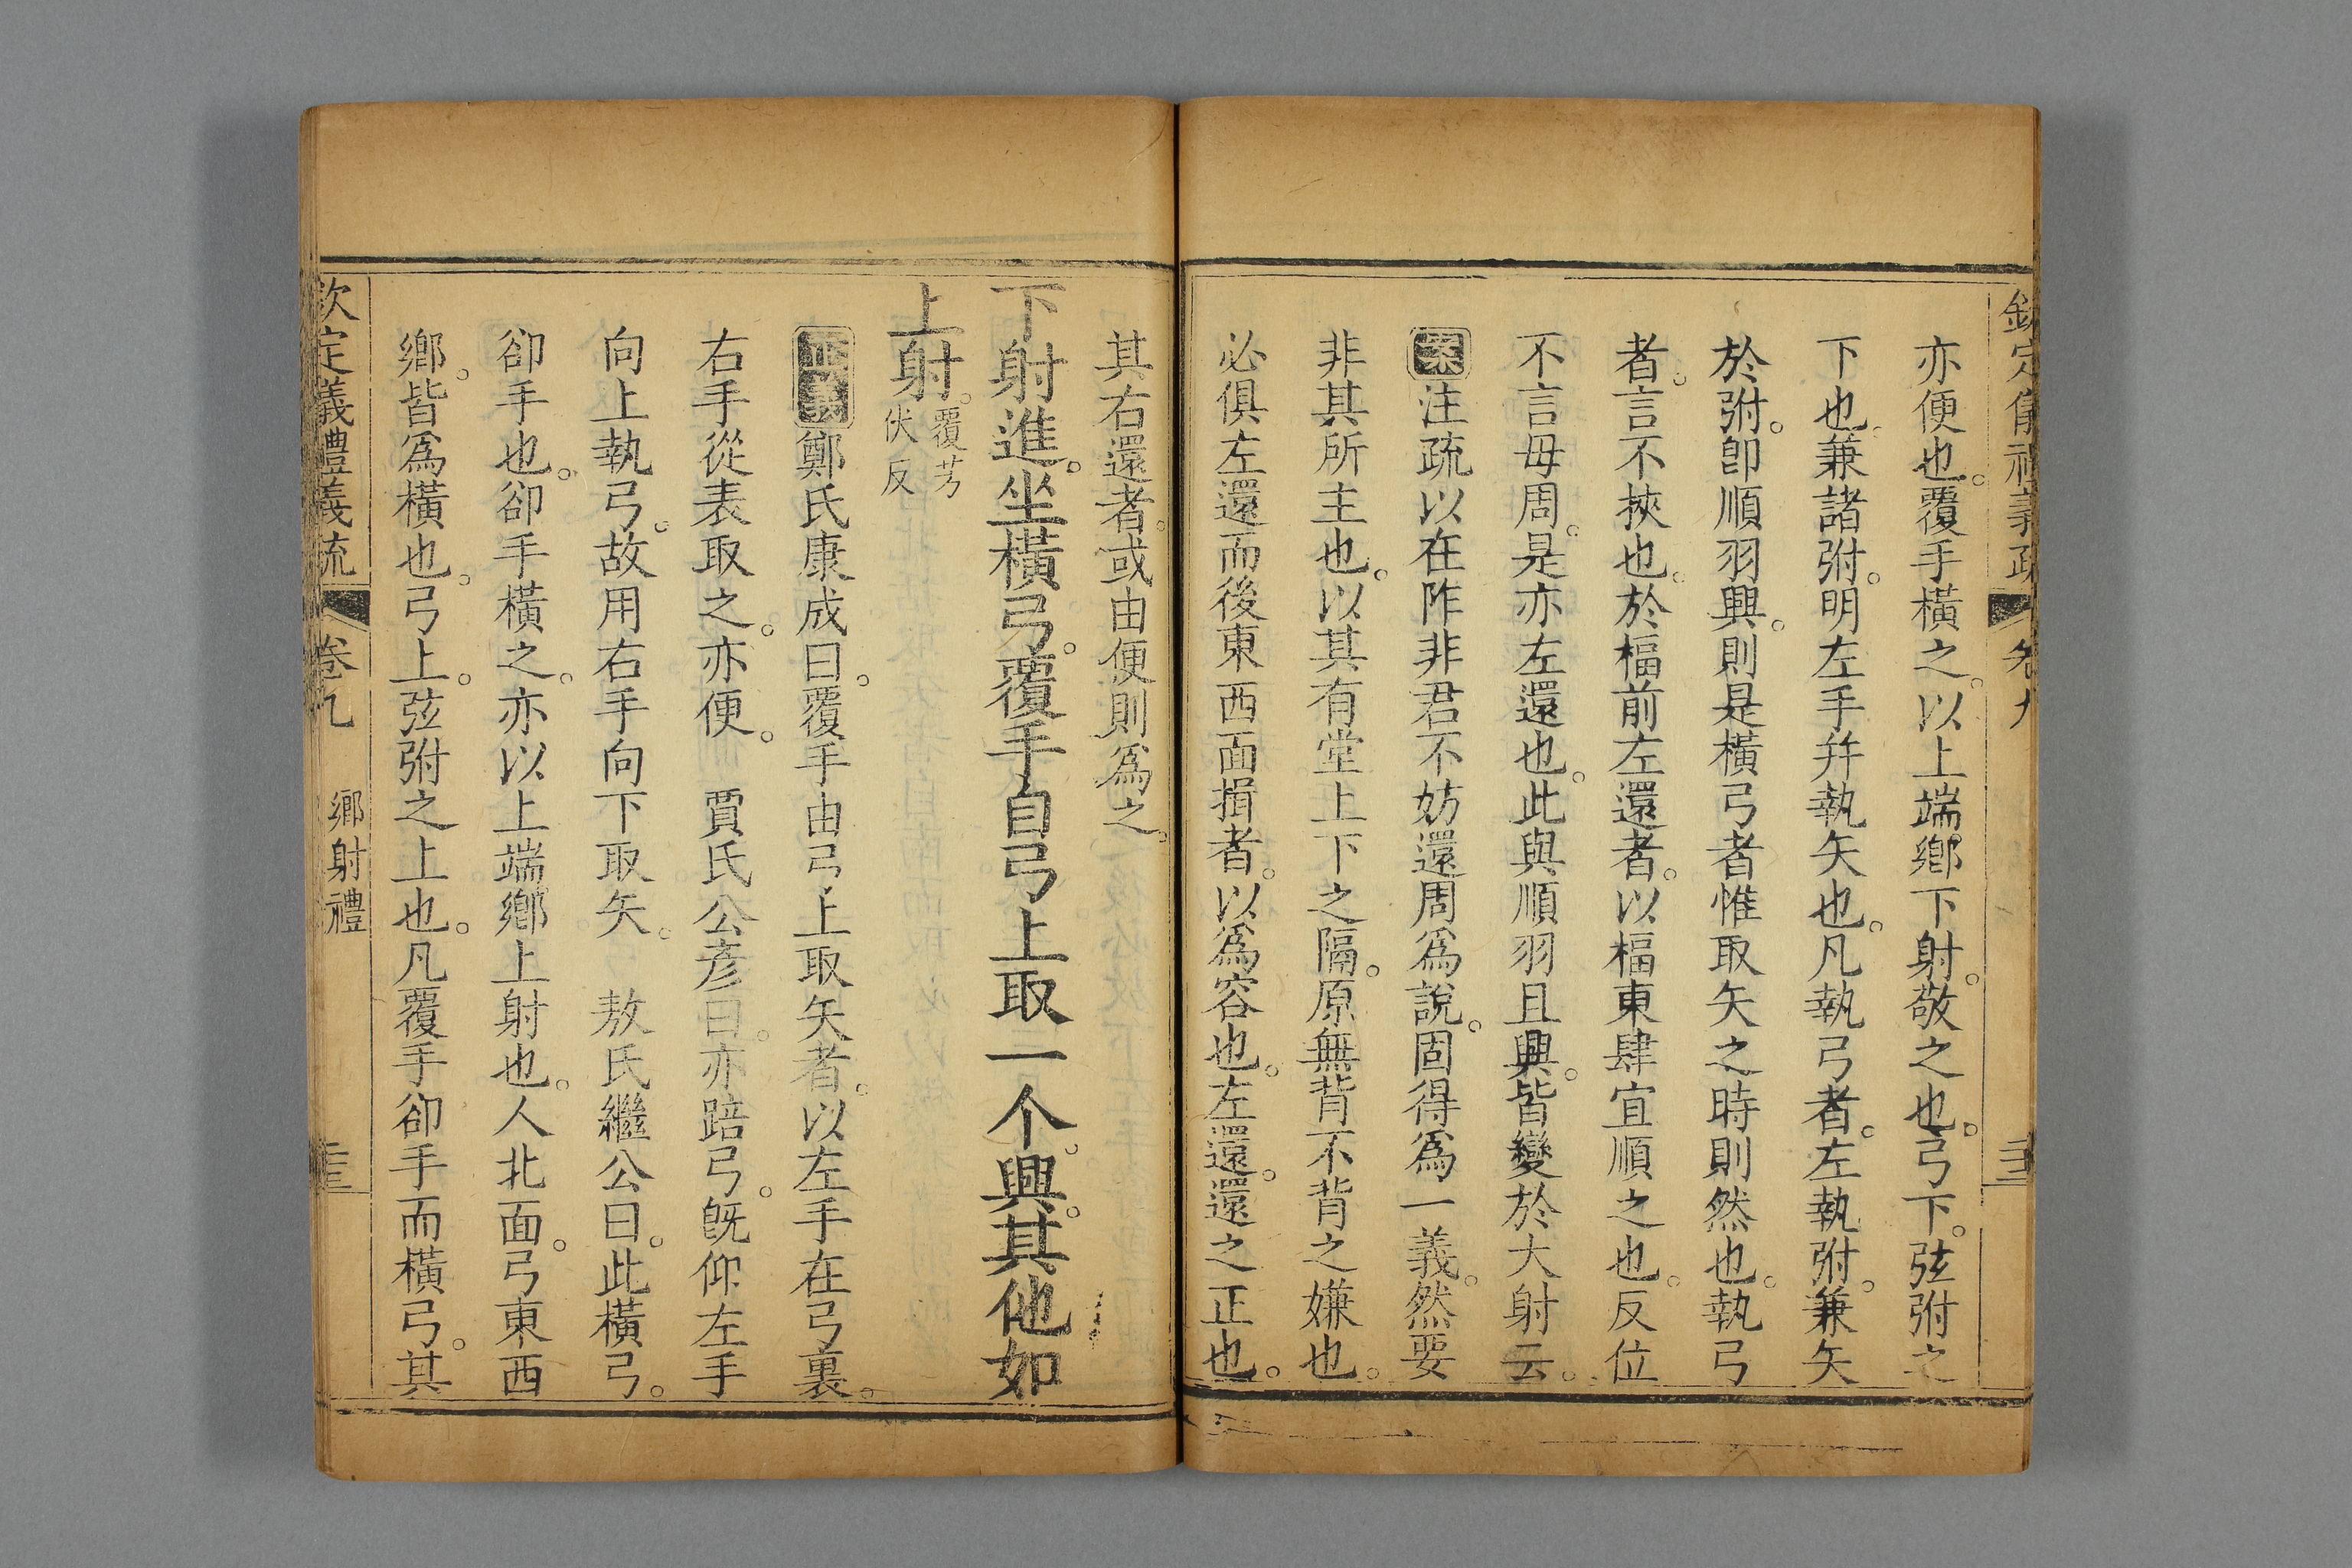 欽定儀禮義疏 卷九
亦便也。覆手橫之。以上端鄉下射。敬之也。弓下。弦弣之
下也。兼諸弣。明左手幷執矢也。凡執弓者。左執弣。兼矢
於弣。卽順羽興。則是橫弓者惟取矢之時則然也。執弓
者。言不挾也。於楅前左還者。以楅東肆宜順之也。反位
不言毋周。是亦左還也。此與順羽且興。皆變於大射云。
案注疏以在阼非君不妨還周爲說。固得爲一義。然要
非其所主也。以其有堂上下之隔。原無背不背之嫌也。
必俱左還而後東西面揖者。以爲容也。左還。還之正也。
其右還者。或由便則爲之。
下射進。坐橫弓。覆手自弓上取一个。興。其他如
上射。覆芳伏反
正義鄭氏康成曰。覆手由弓上取矢者。以左手在弓裏。
右手從表取之。亦便。 賈氏公彦曰。亦踣弓。旣仰左手
向上執弓。故用右手向下取矢。 敖氏繼公曰。此橫弓。
卻手也。卻手橫之。亦以上端鄉上射也。人北面。弓東西
鄉。皆爲橫也。弓上。弦弣之上也。凡覆手卻手而橫弓。其
欽定儀禮義疏 卷九 鄉射禮